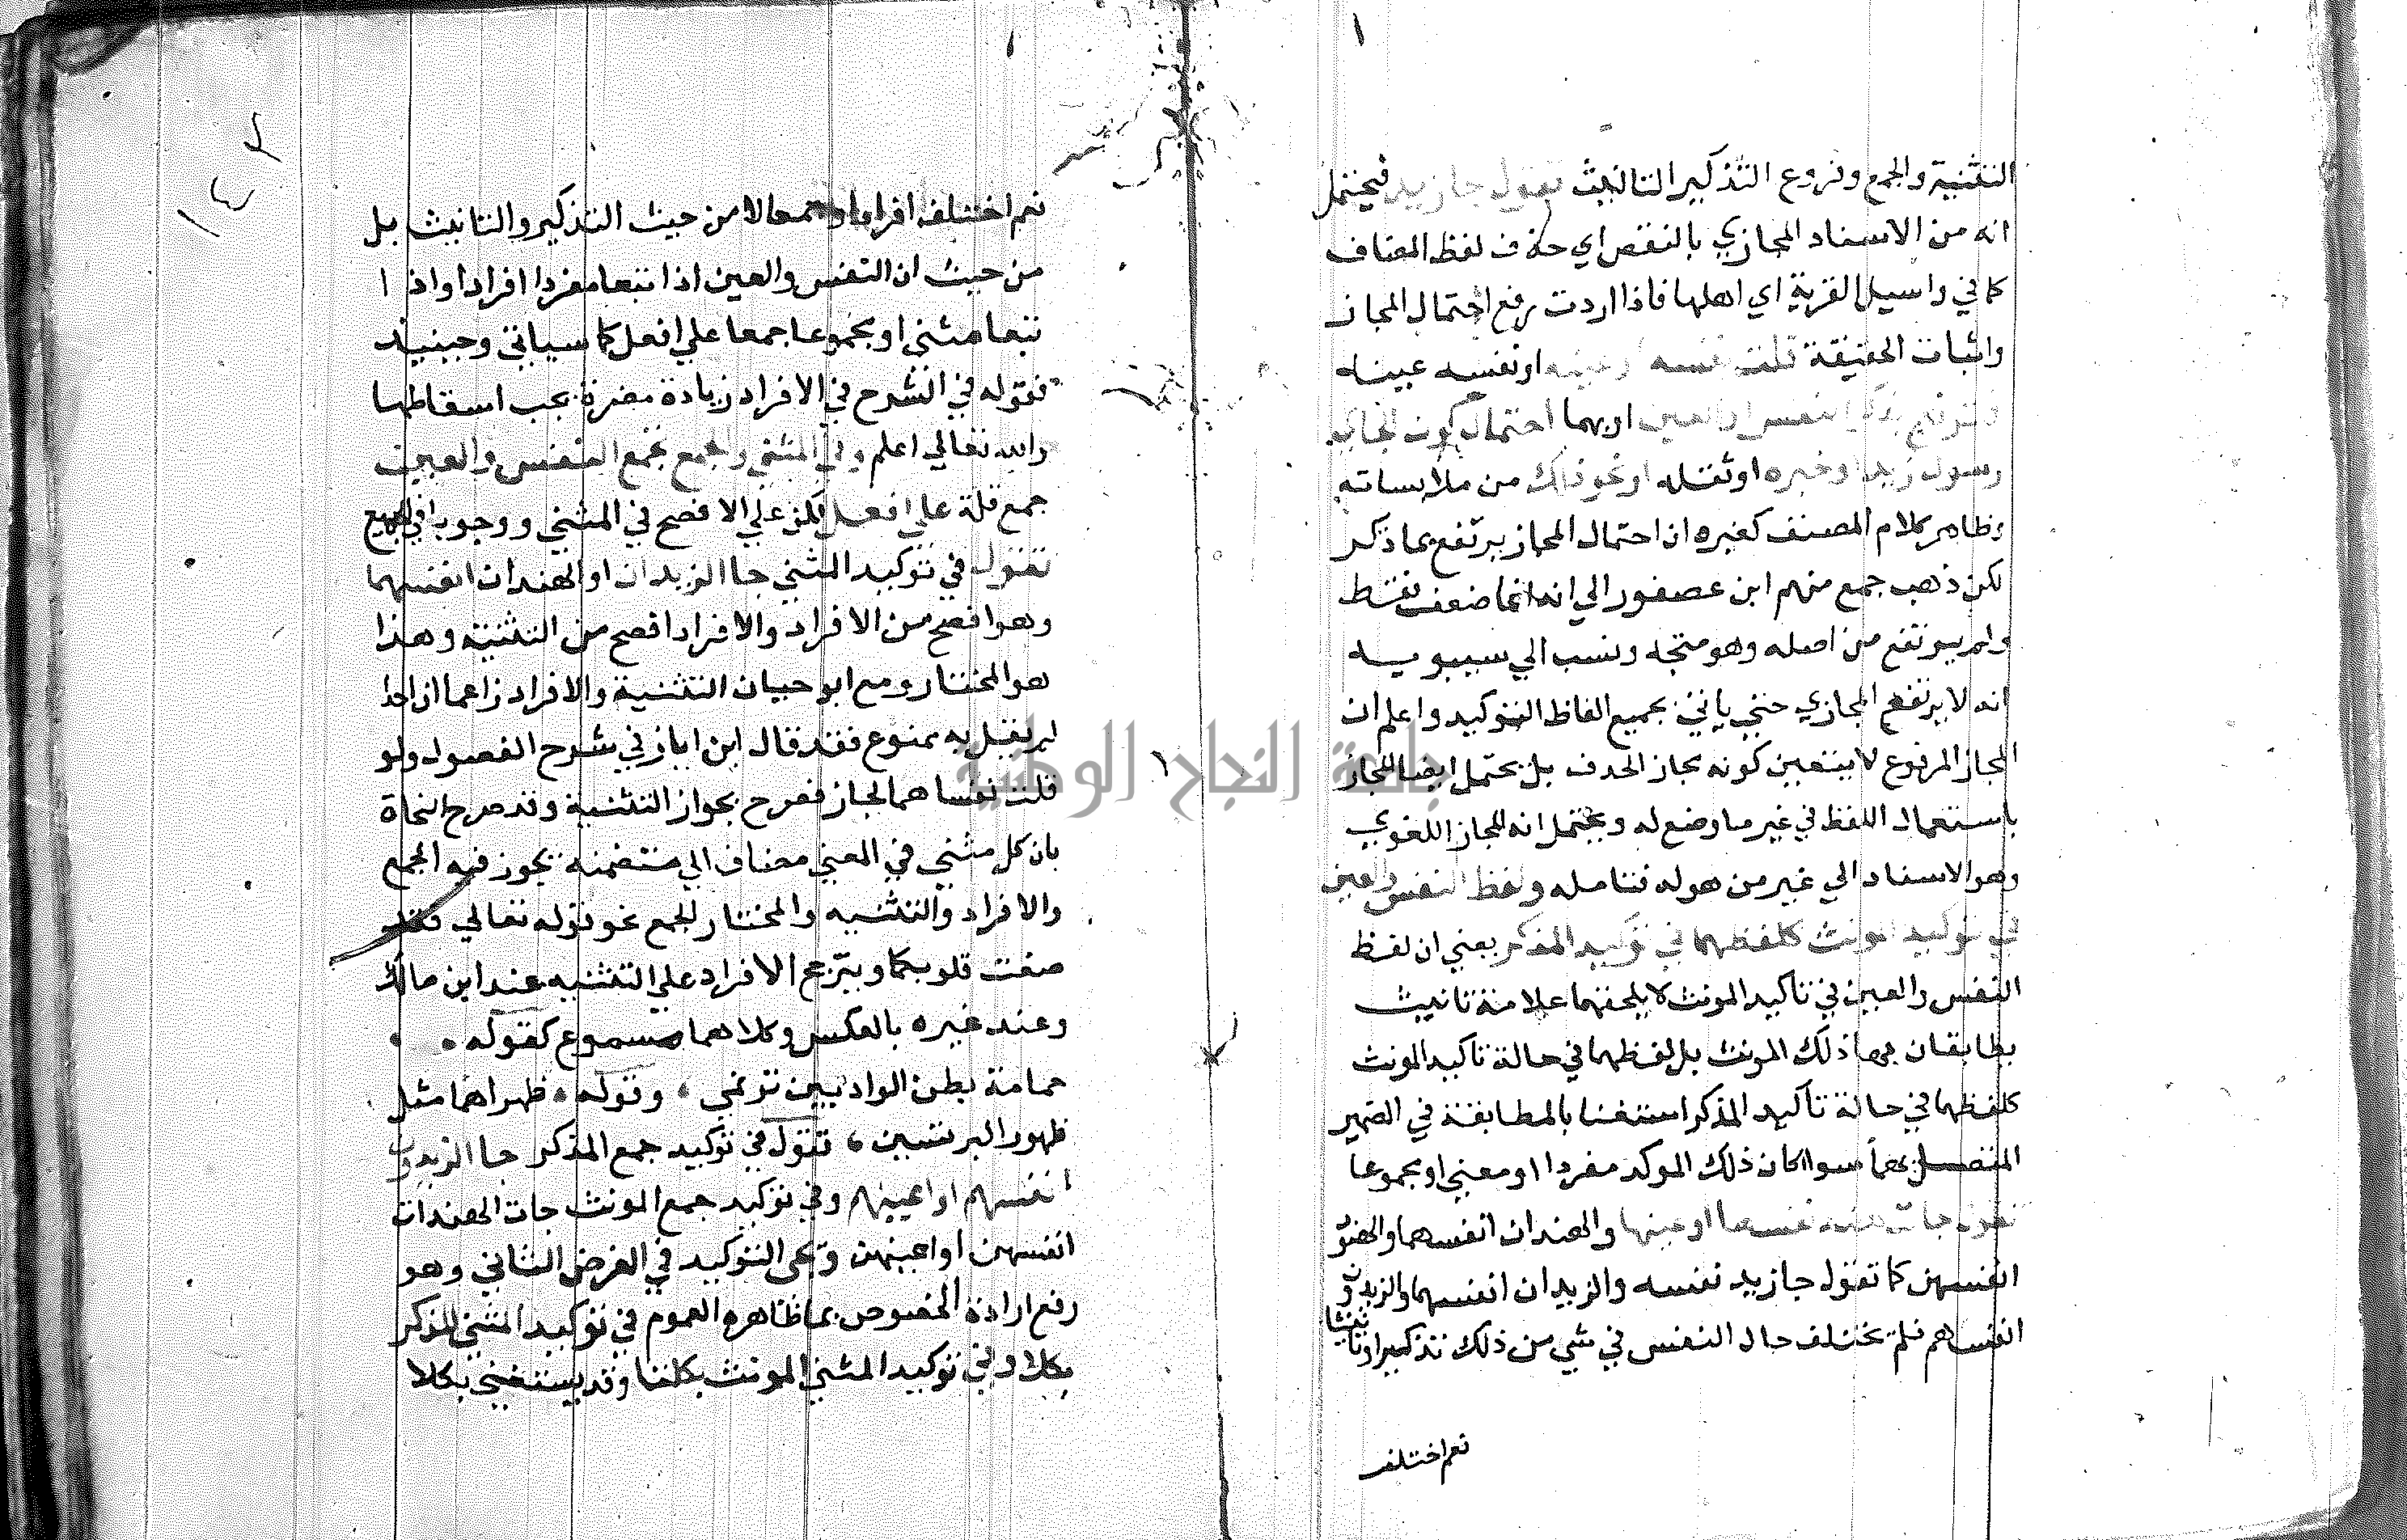 ١
التثنية والجمع وفروع التذكير التانيث تقول جا زيد فيحتمل
انه من الاسناد المجازي بالنقص اي حذف لفظ المضاف
كما في واسيل القرية اي اهلها فاذا اردت رفع احتمال المجاز
واثبات الحقيقة قلت نفسه او عينه او نفسه عينه
فترتفع بذكر النفس او العين او بهما احتمال كون الجاي
رسول زيد او خبره او ثقله او نحو ذلك من ملابساته
وظاهر كلام المصنف كغيره ان احتمال المجاز يرتفع بما ذكر
لكن ذهب جمع منهم ابن عصفور الي انه انما ضعف فقط
ولم يرتفع من اصله وهو متجه ونسب الي سيبويه
انه لا يرتفع المجازي حتي ياتي بجميع الفاظ التوكيد واعلم ان
المجاز المرفوع لا يتعين كونه مجاز الحذف بل يحتمل ايضا المجاز
باستعمال اللفظ في غير ما وضع له ويحتمل انه المجاز اللغوي
وهو الاسناد الي غير من هو له فتامله ولفظ النفس والعين
في توكيد المونث كلفظهما في توكيد المذكر يعني ان لفظ
النفس والعين في تاكيد المونث لا يلحقهما علامة تانيث
يطابقان بها ذلك المونث بل لفظهما في حالة تاكيد المونث
كلفظهما في حالة تاكيد المذكر استغنا بالمطابقة في الضمير
المتصل بهما سوا كان ذلك الموكد مفردا او معني او مجموعا
تقول جات هند نفسها او عينها والهندان انفسهما والهنود
انفسهن كما تقول جا زيد نفسه والزيدان انفسهما والزيدون
انفساهم فلم تختلف حال النفس في شي من ذلك تذكيرا وتانيثا
نعم اختلف
١
١٤٢
نعم اختلف افرادا وجمعا لا من حيث التذكير والتانيث بل
من حيث ان النفس والعين اذا تبعا مفردا افرادا واذا
تبعا مثني او مجموعا جمعا علي افعل كما سياتي وحينيذ
فقوله في الشرح في الافراد زيادة مضرة يجب اسقاطها
والله تعالي اعلم وفي المثني والجمع تجمع النفس والعين
جمع قلة علي افعل لكن علي الافصح في المثني ووجوبا في الجميع
تقول في توكيد المثني جا الزيدان او الهندان انفسهما
وهو افصح من الافراد والافراد افصح من التثنية وهذا
هو المختار ومنع ابو حيان التثنية والافراد زاعما ان احدا
لم يقل به ممنوع فقد قال ابن اياز في شرح الفصول ولو
قلت نفساهما لجاز فصرح بجواز التثنية وقد صرح النحاة
بان كل مثني في المعني مضاف الي متضمنه يجوز فيه الجمع
والافراد والتثنيه والمختار الجمع نحو قوله تعالي فقد
صغت قلوبكما ويترجح الافراد علي التثنيه عند ابن مالك
وعند غيره بالعكس وكلاهما مسموع كقوله
حمامة بطن الواديين ترنمي ، وقوله ، ظهراهما مثل
ظهور البرسين ، تقول في توكيد جمع المذكر جا الزيدون
انفسهم او اعينهم وفي توكيد جمع المونث جات الهندات
انفسهن او اعينهن ويجي التوكيد في الغرض الثاني وهو
رفع ارادة الخصوص بما ظاهره العموم في توكيد المثني المذكر
بكلا وفي توكيد المثني المونث بكلتا وقد يستغني بكلا
جامعة النجاح الوطنية